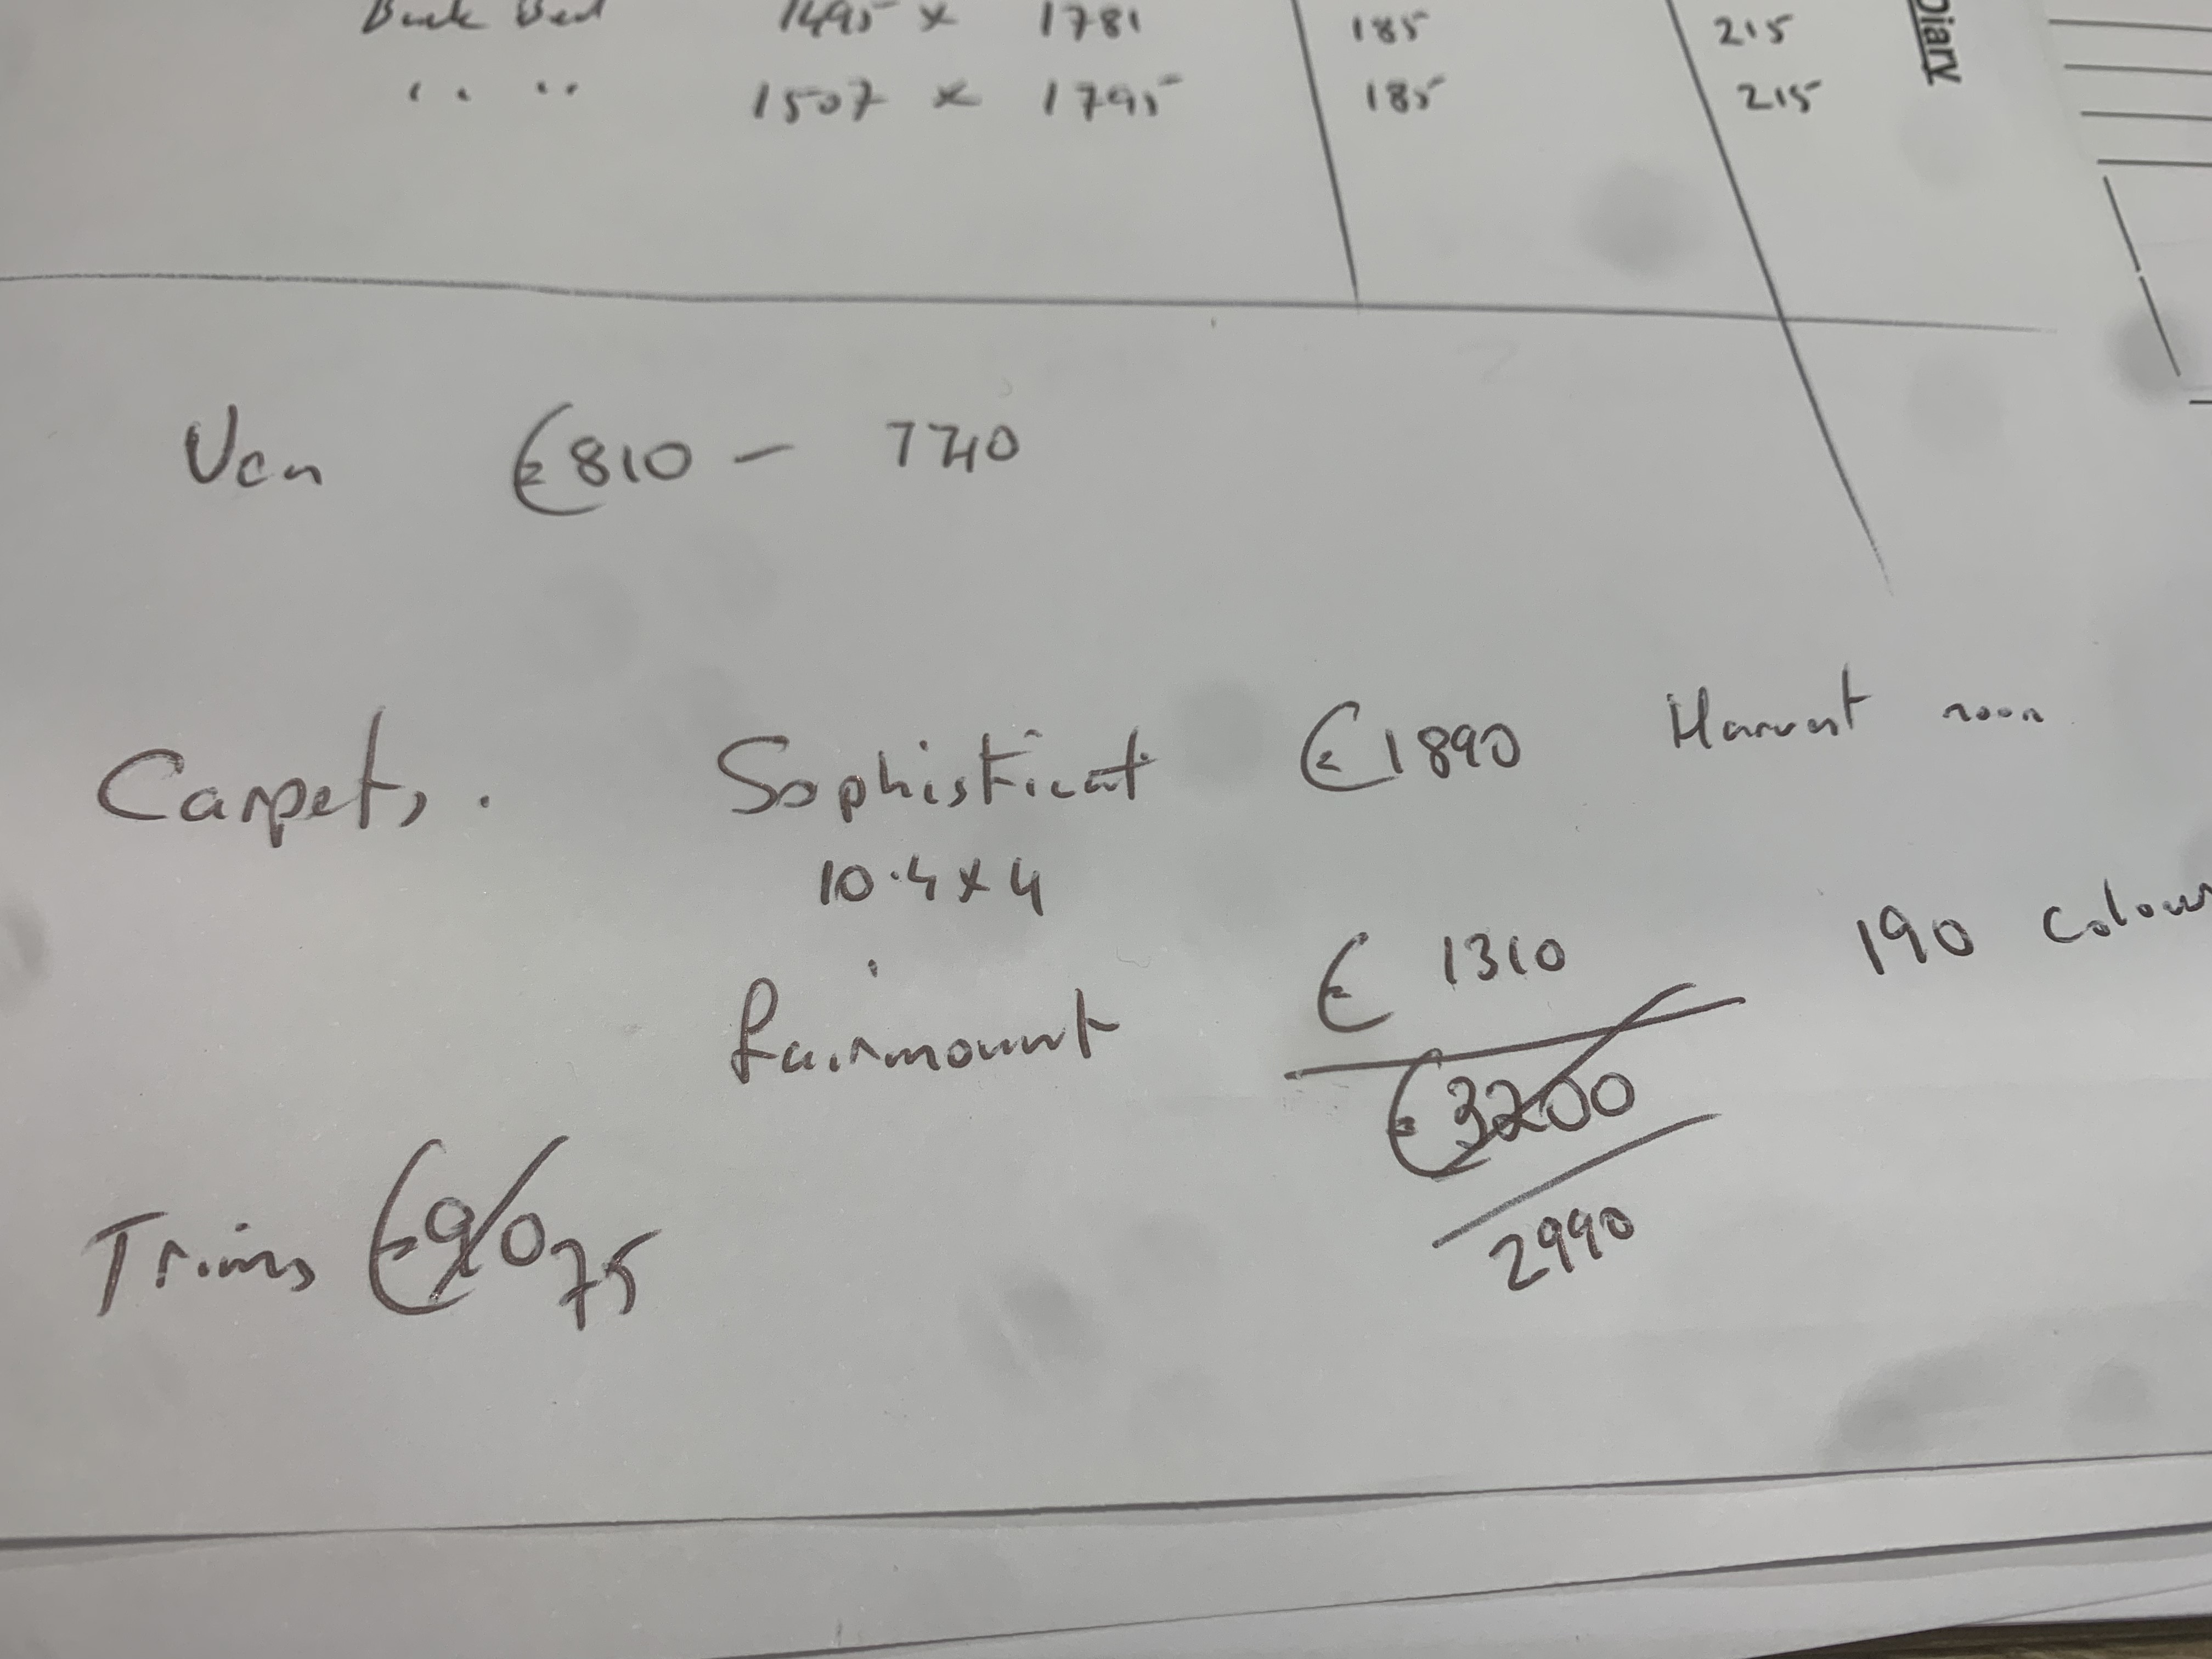 Back Bed 1495 x 1781 185 215
" " 1507 x 1795 185 215
Diary
Ven €810 - 740
Carpets. Sophisticat €1890 Harvest moon
10.4 x 4
fairmount € 1310 190 Colour
€3200
2990
Trims €90 75